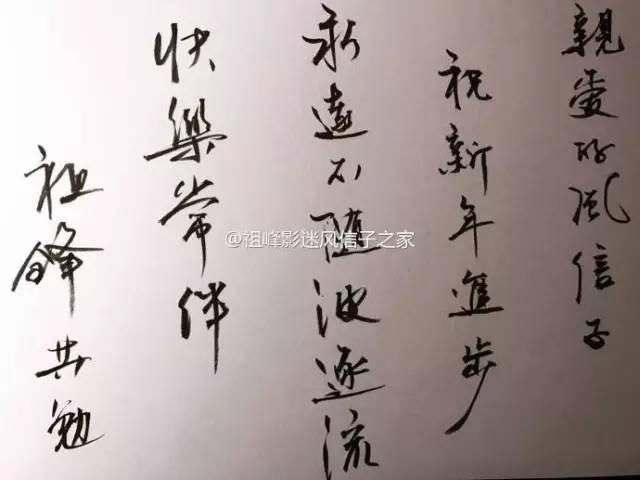 親愛的風信子
祝新年進步
永遠不隨波逐流
快樂常伴
祖峰共勉
@祖峰影迷风信子之家